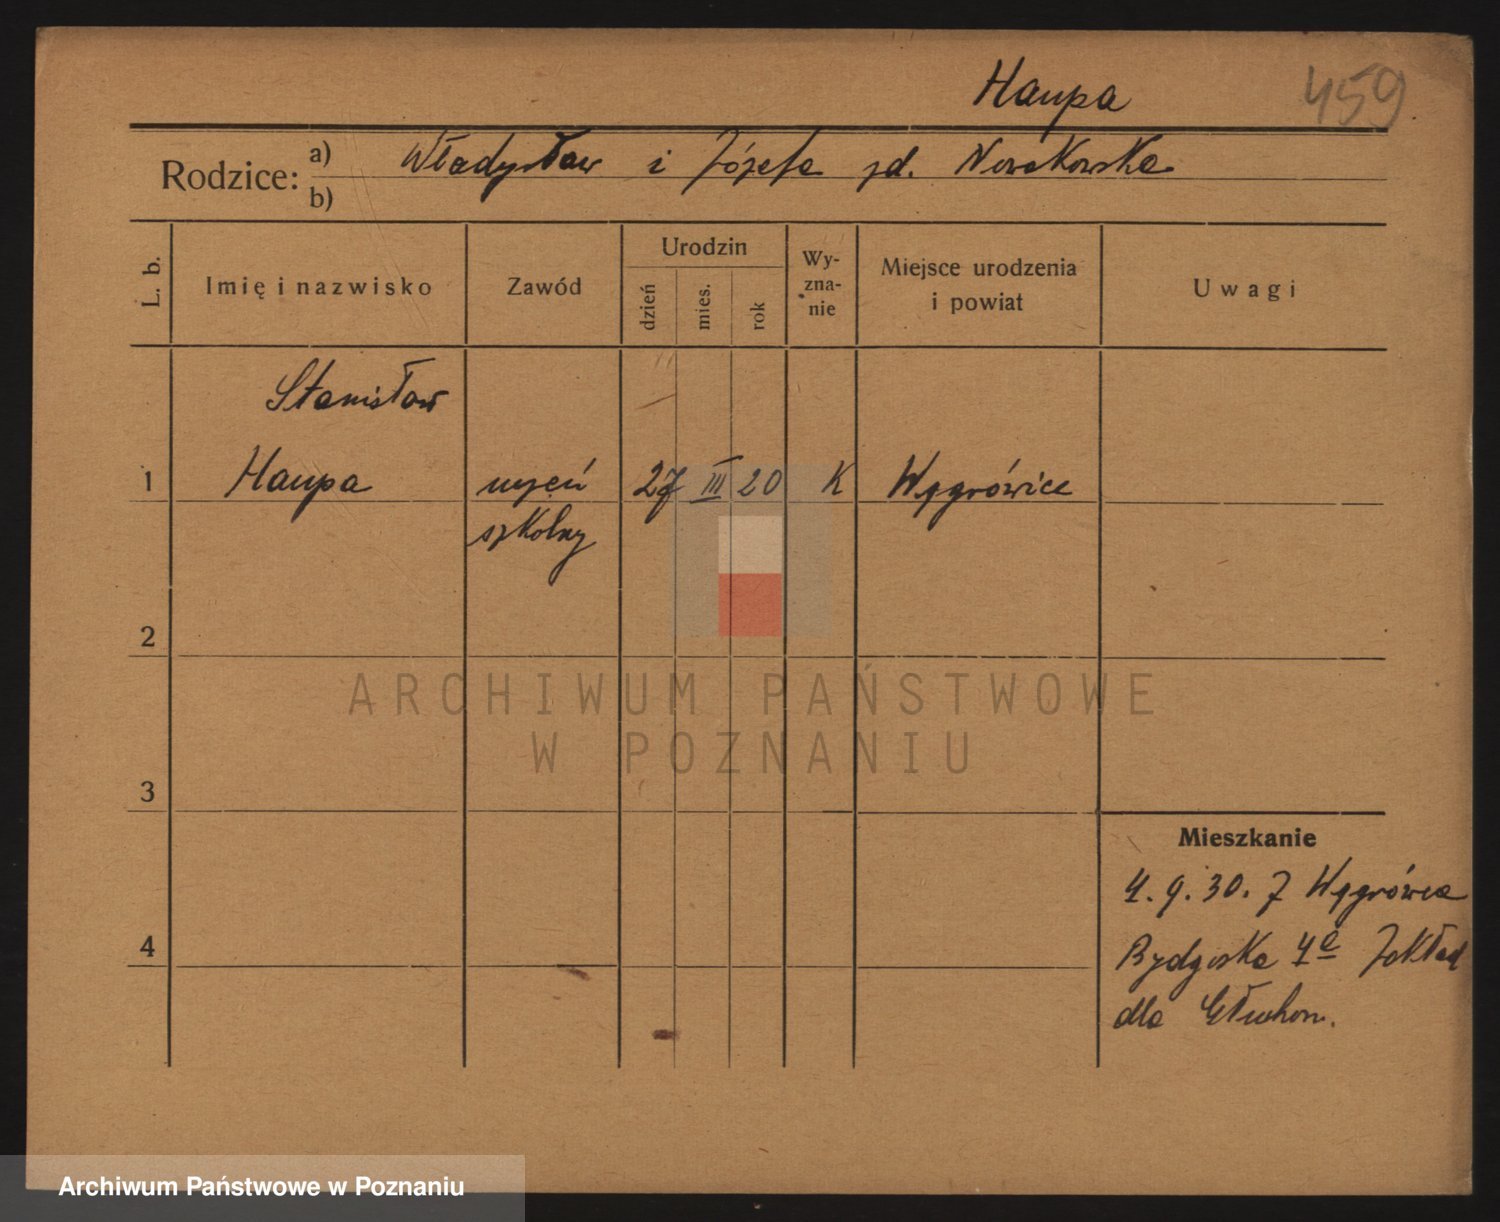 Haupa 459
Rodzice: a) Władysław i Józefa zd. Nowakowska
b)
L. b. Imię i nazwisko Zawód Urodzin dzień mies. rok Wy-zna-nie Miejsce urodzenia i powiat Uwagi
Stanisław
1 Haupa uczeń 27 III 20 K Wągrówiec
szkolny
2
ARCHIWUM PAŃSTWOWE
W POZNANIU
3
Mieszkanie
4. 9. 30. z Wągrówca
4 Bydgoska 4a Zakład
dla Głuchon.
Archiwum Państwowe w Poznaniu